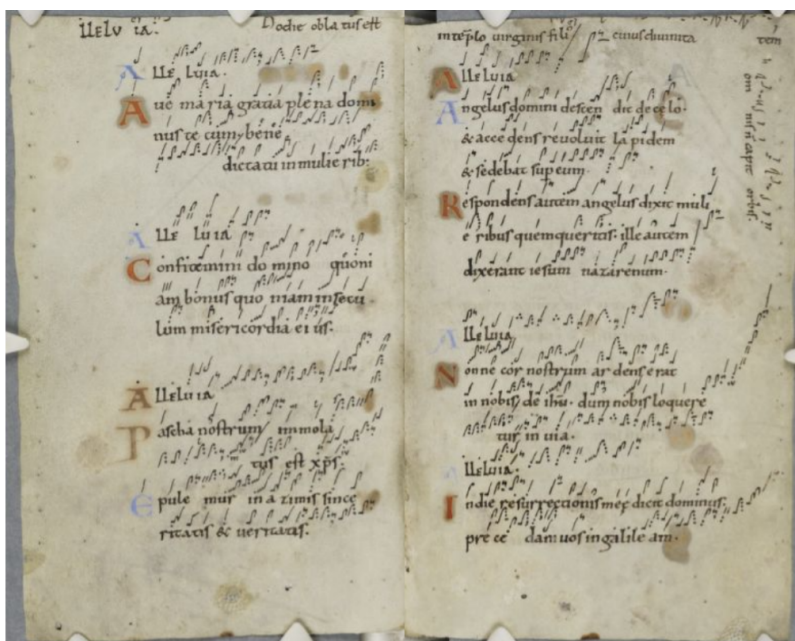 lleLu ia. hodie oblatus est
A lle Luia.
Aue maria gratia plena domi
nus te cum & bene
dicta tu in mulieribus
A lle Luia
Confitemini domino quoni
am bonus quoniam in secu
lum misericordia eius.
Alleluia
Pascha nostrum immola
tus est xps.
Epule mur in azimis since
ritatis & ueritatis.
in templo uirginis fili cuius diuinita tem
omnis n capit orbis.
Alleluia
Angelus domini descen dit de celo.
& acce dens reuoluit lapidem
& sedebat super eum.
Respondens autem angelus dixit muli
e ribus quem queritis. ille autem
dixerunt iesum nazarenum.
Alleluia
Nonne cor nostrum ardens erat
in nobis de ihu. dum nobis loquere
tur in uia.
Alleluia.
In die resurrectionis meę dicit dominus
pre ce dam uos in galileam.